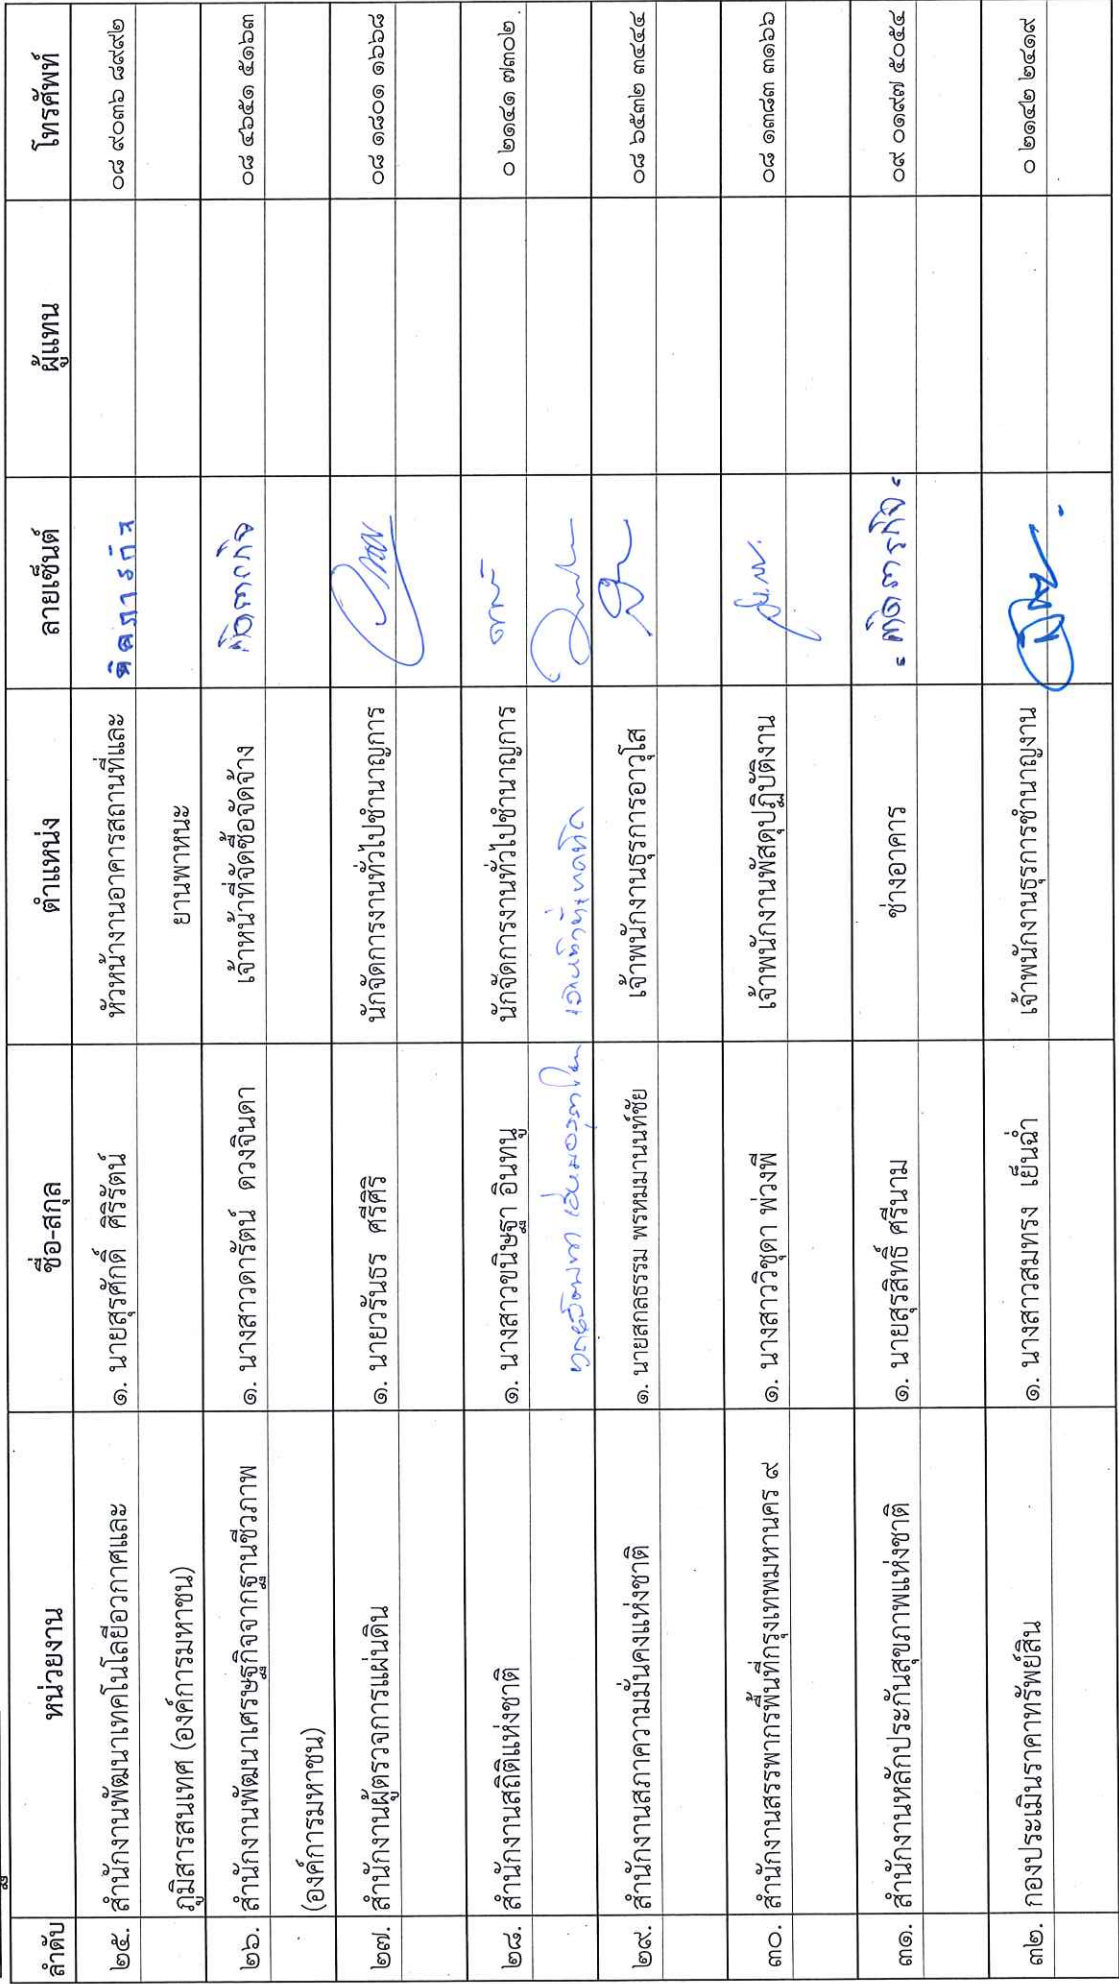 ลำดับ หน่วยงาน ชื่อ-สกุล ตำแหน่ง ลายเซ็นต์ ผู้แทน โทรศัพท์
๒๕. สำนักงานพัฒนาเทคโนโลยีอวกาศและ ๑. นายสุรศักดิ์ ศิริรัตน์ หัวหน้างานอาคารสถานที่และ ติดภารกิจ ๐๘ ๙๐๓๖ ๘๙๙๒
ภูมิสารสนเทศ (องค์การมหาชน) ยานพาหนะ
๒๖. สำนักงานพัฒนาเศรษฐกิจจากฐานชีวภาพ ๑. นางสาวดารัตน์ ดวงจินดา เจ้าหน้าที่จัดซื้อจัดจ้าง ติดภารกิจ ๐๘ ๔๖๕๑ ๕๑๖๓
(องค์การมหาชน)
๒๗. สำนักงานผู้ตรวจการแผ่นดิน ๑. นายวรันธร ศรีศิริ นักจัดการงานทั่วไปชำนาญการ ๐๘ ๑๘๐๑ ๑๖๖๘
๒๘. สำนักงานสถิติแห่งชาติ ๑. นางสาวขนิษฐา อินทนู นักจัดการงานทั่วไปชำนาญการ ๐ ๒๑๔๑ ๗๓๐๒
๒๙. สำนักงานสภาความมั่นคงแห่งชาติ ๑. นายสกลธรรม พรหมมานนท์ชัย เจ้าพนักงานธุรการอาวุโส ๐๘ ๖๕๓๒ ๓๔๔๔
๓๐. สำนักงานสรรพากรพื้นที่กรุงเทพมหานคร ๙ ๑. นางสาววิชุดา พ่วงพี เจ้าพนักงานพัสดุปฏิบัติงาน ๐๘ ๑๓๘๓ ๓๑๖๖
๓๑. สำนักงานหลักประกันสุขภาพแห่งชาติ ๑. นายสุรสิทธิ์ ศรีนาม ช่างอาคาร ติดภารกิจ ๐๙ ๐๑๙๗ ๕๐๕๔
๓๒. กองประเมินราคาทรัพย์สิน ๑. นางสาวสมทรง เย็นฉ่ำ เจ้าพนักงานธุรการชำนาญงาน ๐ ๒๑๔๒ ๒๔๑๙